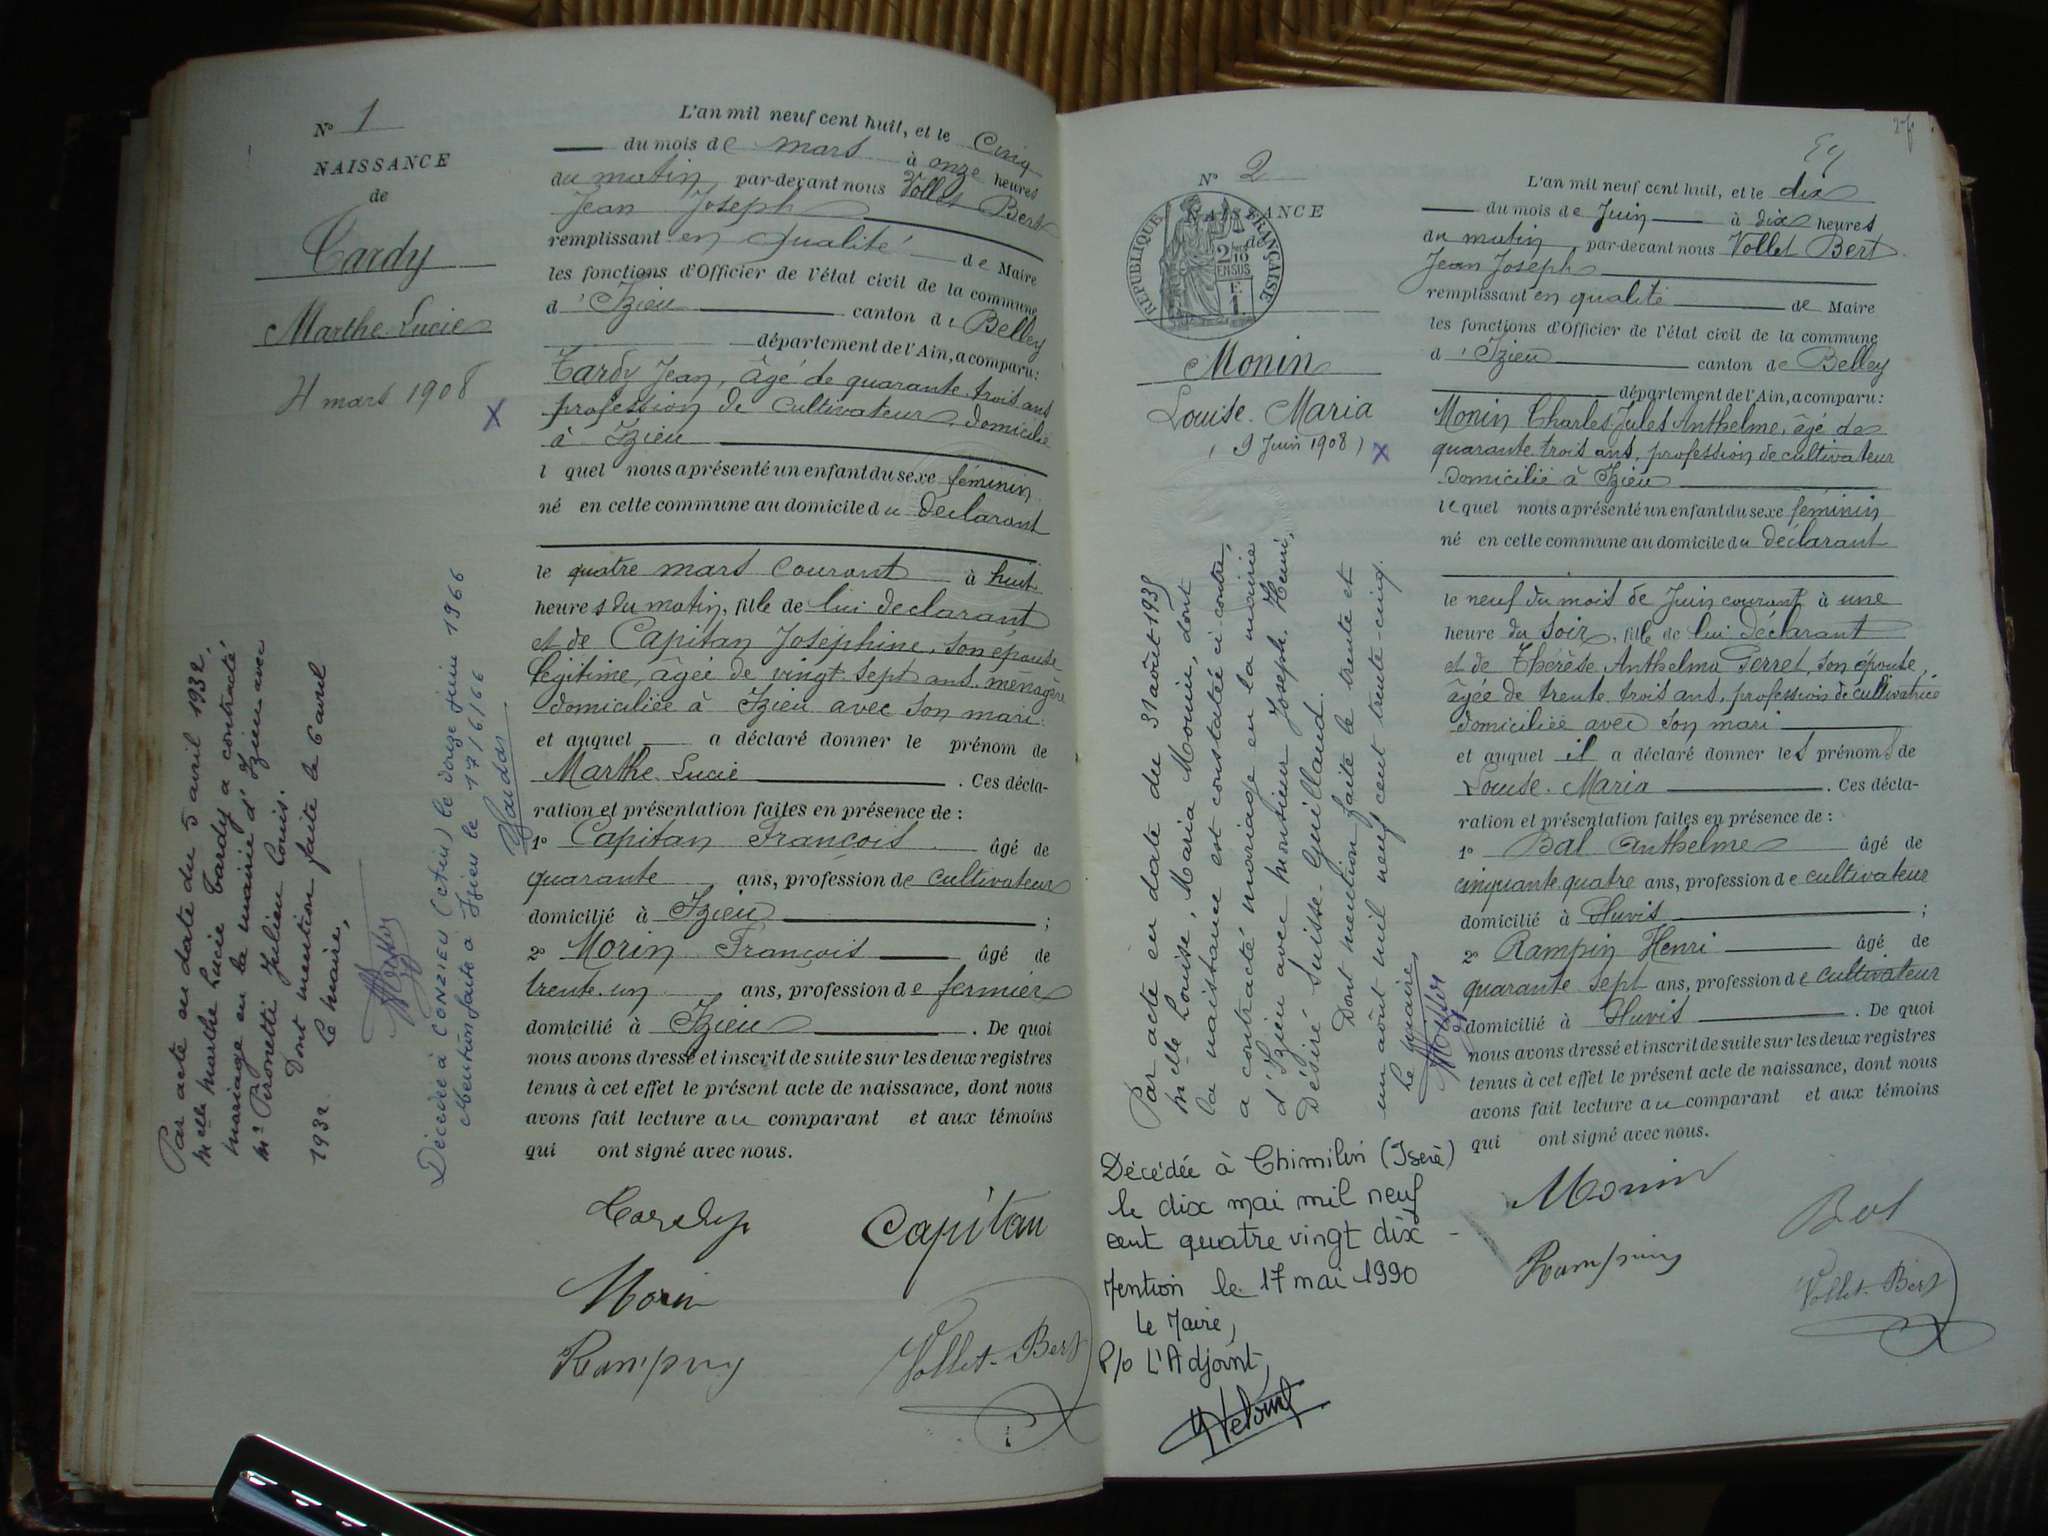 N° 1
NAISSANCE
de
Tardy
Marthe Lucie
4 mars 1908
L'an mil neuf cent huit, et le Cinq
du mois de mars à onze heures
du matin, par-devant nous Vollet Bert
Jean Joseph
remplissant en qualité de Maire
les fonctions d'Officier de l'état civil de la commune
d'Izieu canton de Belley
département de l'Ain, a comparu:
Tardy Jean, âgé de quarante trois ans
profession de cultivateur, domicilié
à Izieu
l quel nous a présenté un enfant du sexe féminin
né en cette commune au domicile du déclarant
le quatre mars courant à huit
heures du matin, fille de lui déclarant
et de Capitan Joséphine, son épouse
légitime, âgée de vingt sept ans, ménagère
domiciliée à Izieu avec son mari
et auquel a déclaré donner le prénom de
Marthe Lucie . Ces décla-
ration et présentation faites en présence de :
1° Capitan François âgé de
quarante ans, profession de cultivateur
domicilié à Izieu ;
2° Morin François âgé de
trente un ans, profession de fermier
domicilié à Izieu . De quoi
nous avons dressé et inscrit de suite sur les deux registres
tenus à cet effet le présent acte de naissance, dont nous
avons fait lecture au comparant et aux témoins
qui ont signé avec nous.
Tardy Capitan
Morin
Vollet-Bert
Par acte en date du 5 avril 1932,
Melle Marthe Lucie Tardy a contracté
mariage en la mairie d'Izieu avec
Mr Pironetti Julien Louis.
Dont mention faite le 6 avril
1932. Le Maire,
Décédée à CONZIEU (Ain) le douze juin 1966
Mention faite à Izieu le 17/6/66
N° 2
NAISSANCE
de
RÉPUBLIQUE FRANÇAISE
2/10
EN SUS
Monin
Louise. Maria
(9 Juin 1908)
L'an mil neuf cent huit, et le dix
du mois de Juin à dix heures
du matin, par-devant nous Vollet Bert
Jean Joseph
remplissant en qualité de Maire
les fonctions d'Officier de l'état civil de la commune
d'Izieu canton de Belley
département de l'Ain, a comparu:
Monin Charles Jules Anthelme, âgé de
quarante trois ans, profession de cultivateur
domicilié à Izieu
lequel nous a présenté un enfant du sexe féminin
né en cette commune au domicile du déclarant
le neuf du mois de Juin courant à une
heure du soir, fille de lui déclarant
et de Thérèse Anthelma Perret, son épouse,
âgée de trente trois ans, profession de cultivatrice
domiciliée avec son mari
et auquel il a déclaré donner les prénoms de
Louise. Maria . Ces décla-
ration et présentation faites en présence de :
1° Bal Anthelme âgé de
cinquante quatre ans, profession de cultivateur
domicilié à ;
2° Rampin Henri âgé de
quarante sept ans, profession de cultivateur
domicilié à . De quoi
nous avons dressé et inscrit de suite sur les deux registres
tenus à cet effet le présent acte de naissance, dont nous
avons fait lecture au comparant et aux témoins
qui ont signé avec nous.
Monin
Bal
Vollet-Bert
Par acte en date du 31 août 1935
Melle Louise, Maria Monin, dont
la naissance est constatée ci-contre,
a contracté mariage en la mairie
d'Izieu avec Monsieur Joseph, Henri,
Désiré Suisse-Guillaud.
Dont mention faite le trente et
un août mil neuf cent trente-cinq.
Le Maire,
Décédée à Chimilin (Isère)
le dix mai mil neuf
cent quatre vingt dix -
Mention le 17 mai 1990
Le Maire,
P/o L'Adjoint,